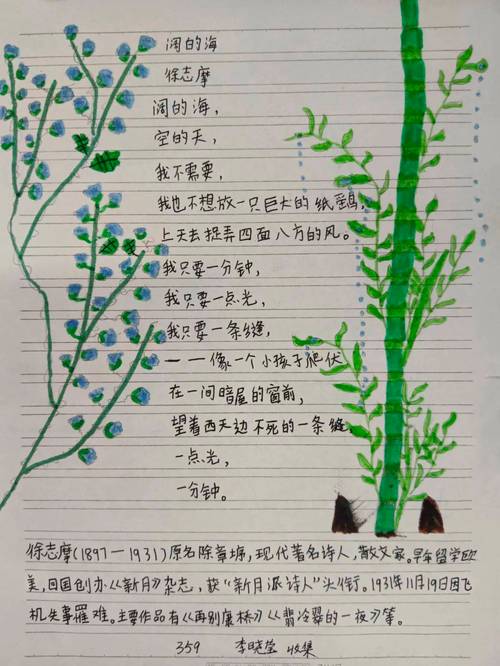 阔的海
徐志摩
阔的海,
空的天,
我不需要,
我也不想放一只巨大的纸鹞,
上天去捉弄四面八方的风。
我只要一分钟,
我只要一点光,
我只要一条缝,
——像一个小孩子爬伏
在一间暗屋的窗前,
望着西天边不死的一条缝
一点光,
一分钟。
徐志摩(1897—1931)原名除章垿,现代著名诗人,散文家。早年留学欧
美,回国创办《新月》杂志,获“新月派诗人”头衔。1931年11月19日因飞
机失事罹难。主要作品有《再别康桥》《翡冷翠的一夜》等。
359 李晓莹 收集